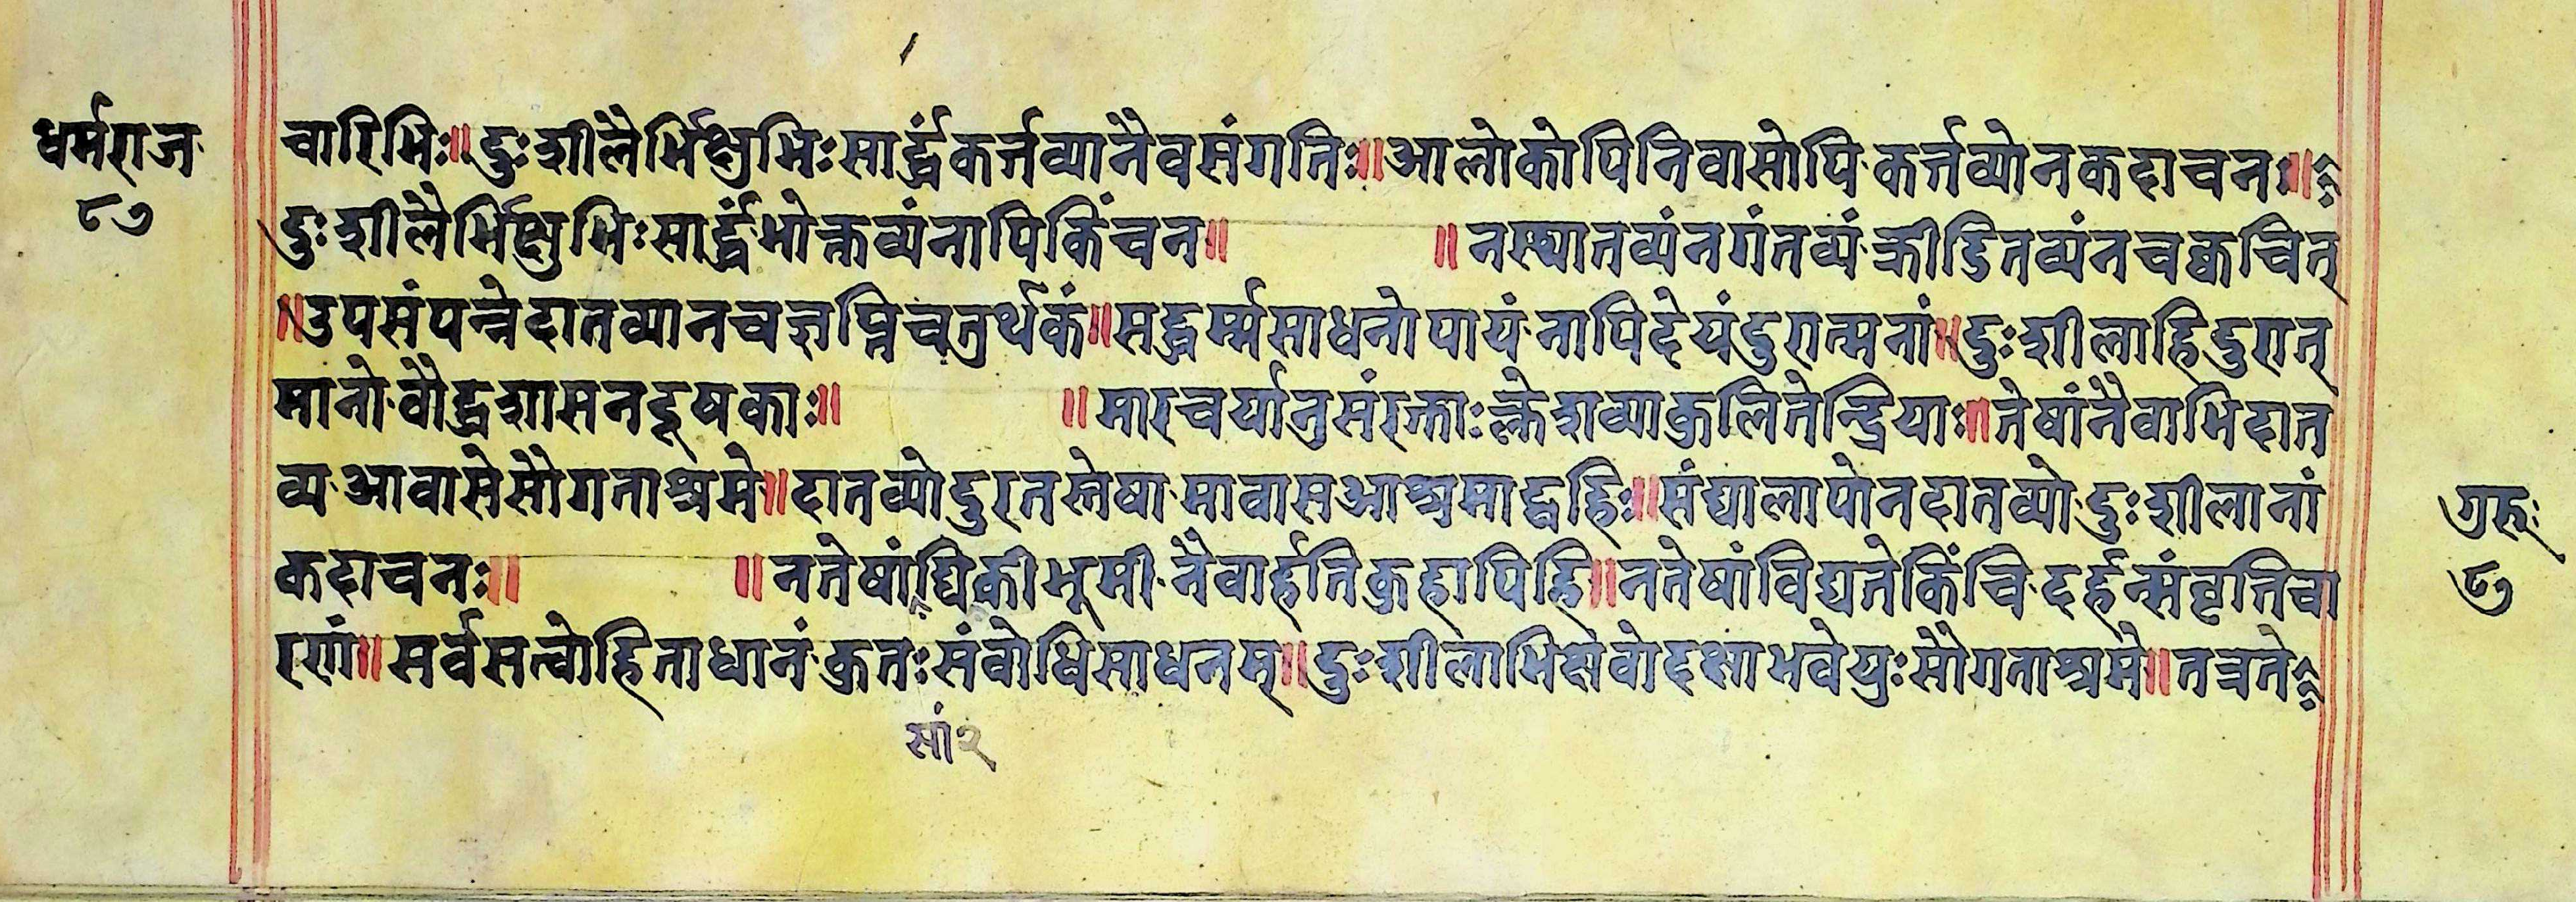 धर्मराज
८७
चारिभिः॥दुःशीलैर्भिक्षुभिःसार्द्धंकर्त्तव्यानैवसंगतिः॥आलोकोपिनिवासोपिकर्त्तव्योनकदाचनः॥
दुःशीलैर्भिक्षुभिःसार्द्धंभोक्तव्यंनापिकिंचन॥ ॥नस्थातव्यंनगंतव्यंक्रीडितव्यंनचक्वचित्
॥उपसंपन्नेदातव्यानचज्ञप्तिचतुर्थकं॥सद्धर्म्मसाधनोपायंनापिदेयंदुरात्मनां॥दुःशीलाहिदुरात्
मानोवौद्धशासनदूषकाः॥ ॥मारचर्यानुसंरक्ताःक्लेशव्याकुलितेन्द्रियाः॥तेषांनैवाभिदात
व्यआवासेसौगताश्रमे॥दातव्योदुरतस्तेषामावासआश्रमाद्बहिः॥संघालापोनदातव्योदुःशीलानां
कदाचनः॥ ॥नतेषांघिकीभूमीनैवार्हतिकुहापिहि॥नतेषांविद्यतेकिंचिदर्हन्संवृत्तिचा
रणां॥सर्वसत्वोहिताधानंकुतःसंवोधिसाधनम्॥दुःशीलाभिक्षवोदक्षाभवेयुःसौगताश्रमे॥तत्रते
सां२
गुरूः
८७